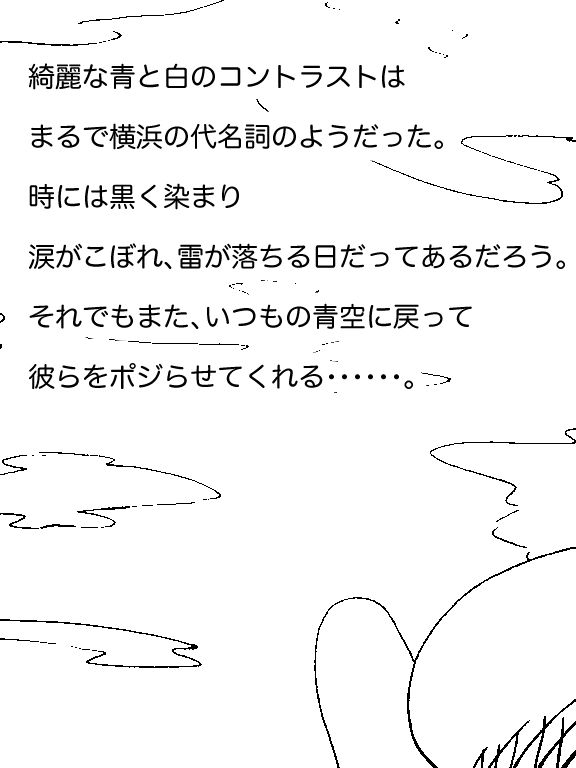 綺麗な青と白のコントラストは
まるで横浜の代名詞のようだった。
時には黒く染まり
涙がこぼれ、雷が落ちる日だってあるだろう。
それでもまた、いつもの青空に戻って
彼らをポジらせてくれる・・・・・・。